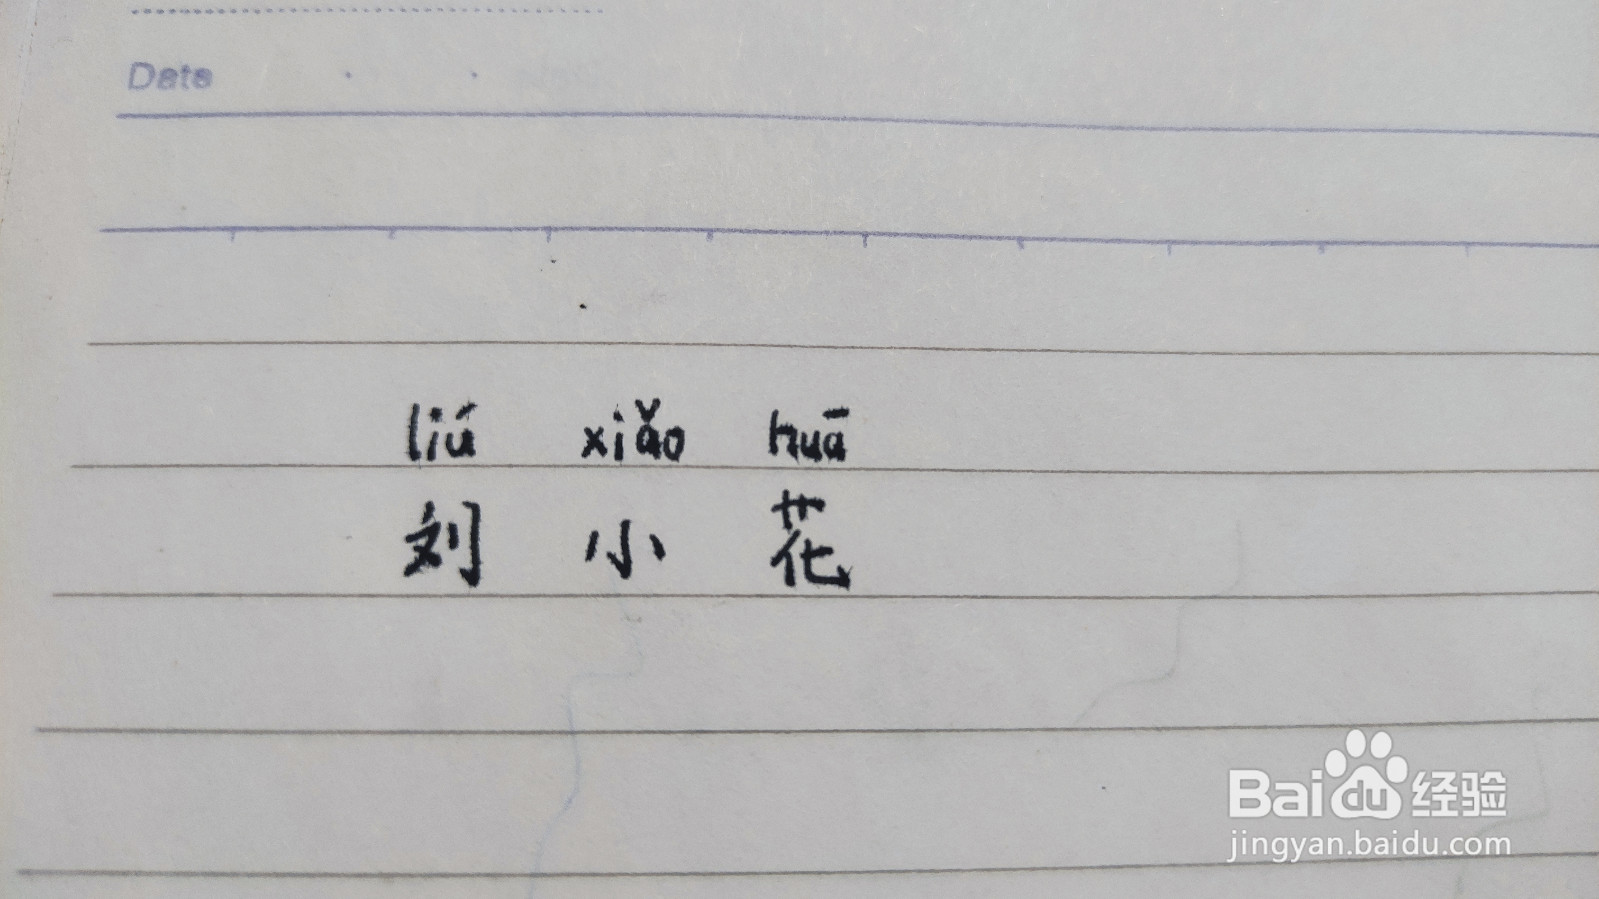 Date
liú xiǎo huā
刘 小 花
Bai du 经验
jingyan.baidu.com